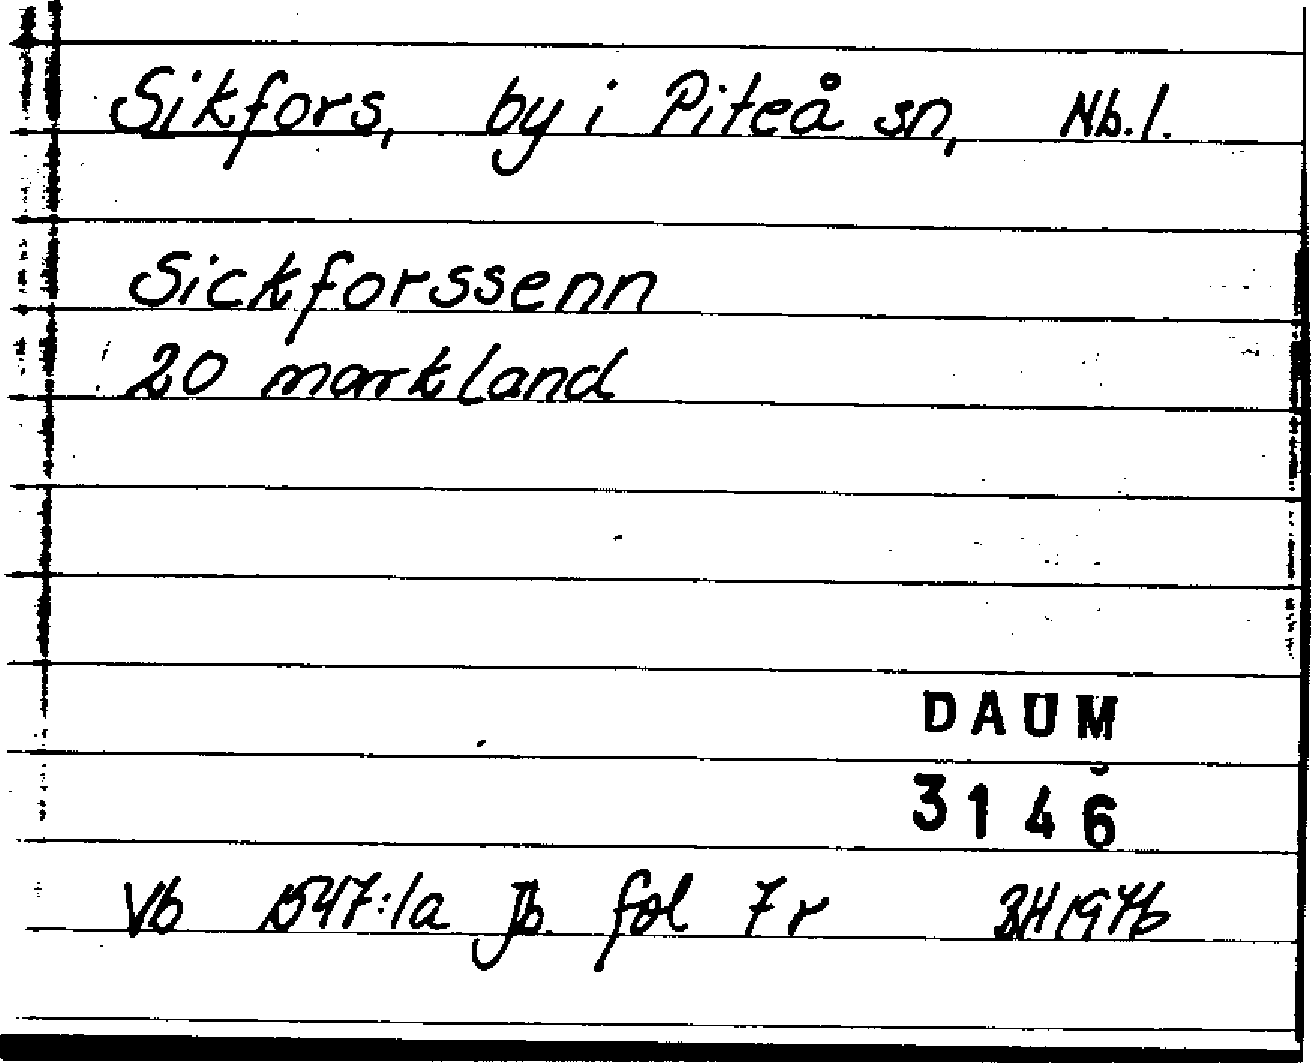 Sikfors, by i Piteå sn, Nb.l.
Sickforssenn
20 markland
DAUM
3146
Vb 1547:1a Jb. fol 7r BH 1976